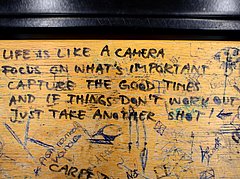 LIFE IS LIKE A CAMERA
FOCUS ON WHAT'S IMPORTANT
CAPTURE THE GOOD TIMES
AND IF THINGS DON'T WORK OUT
JUST TAKE ANOTHER SHOT!